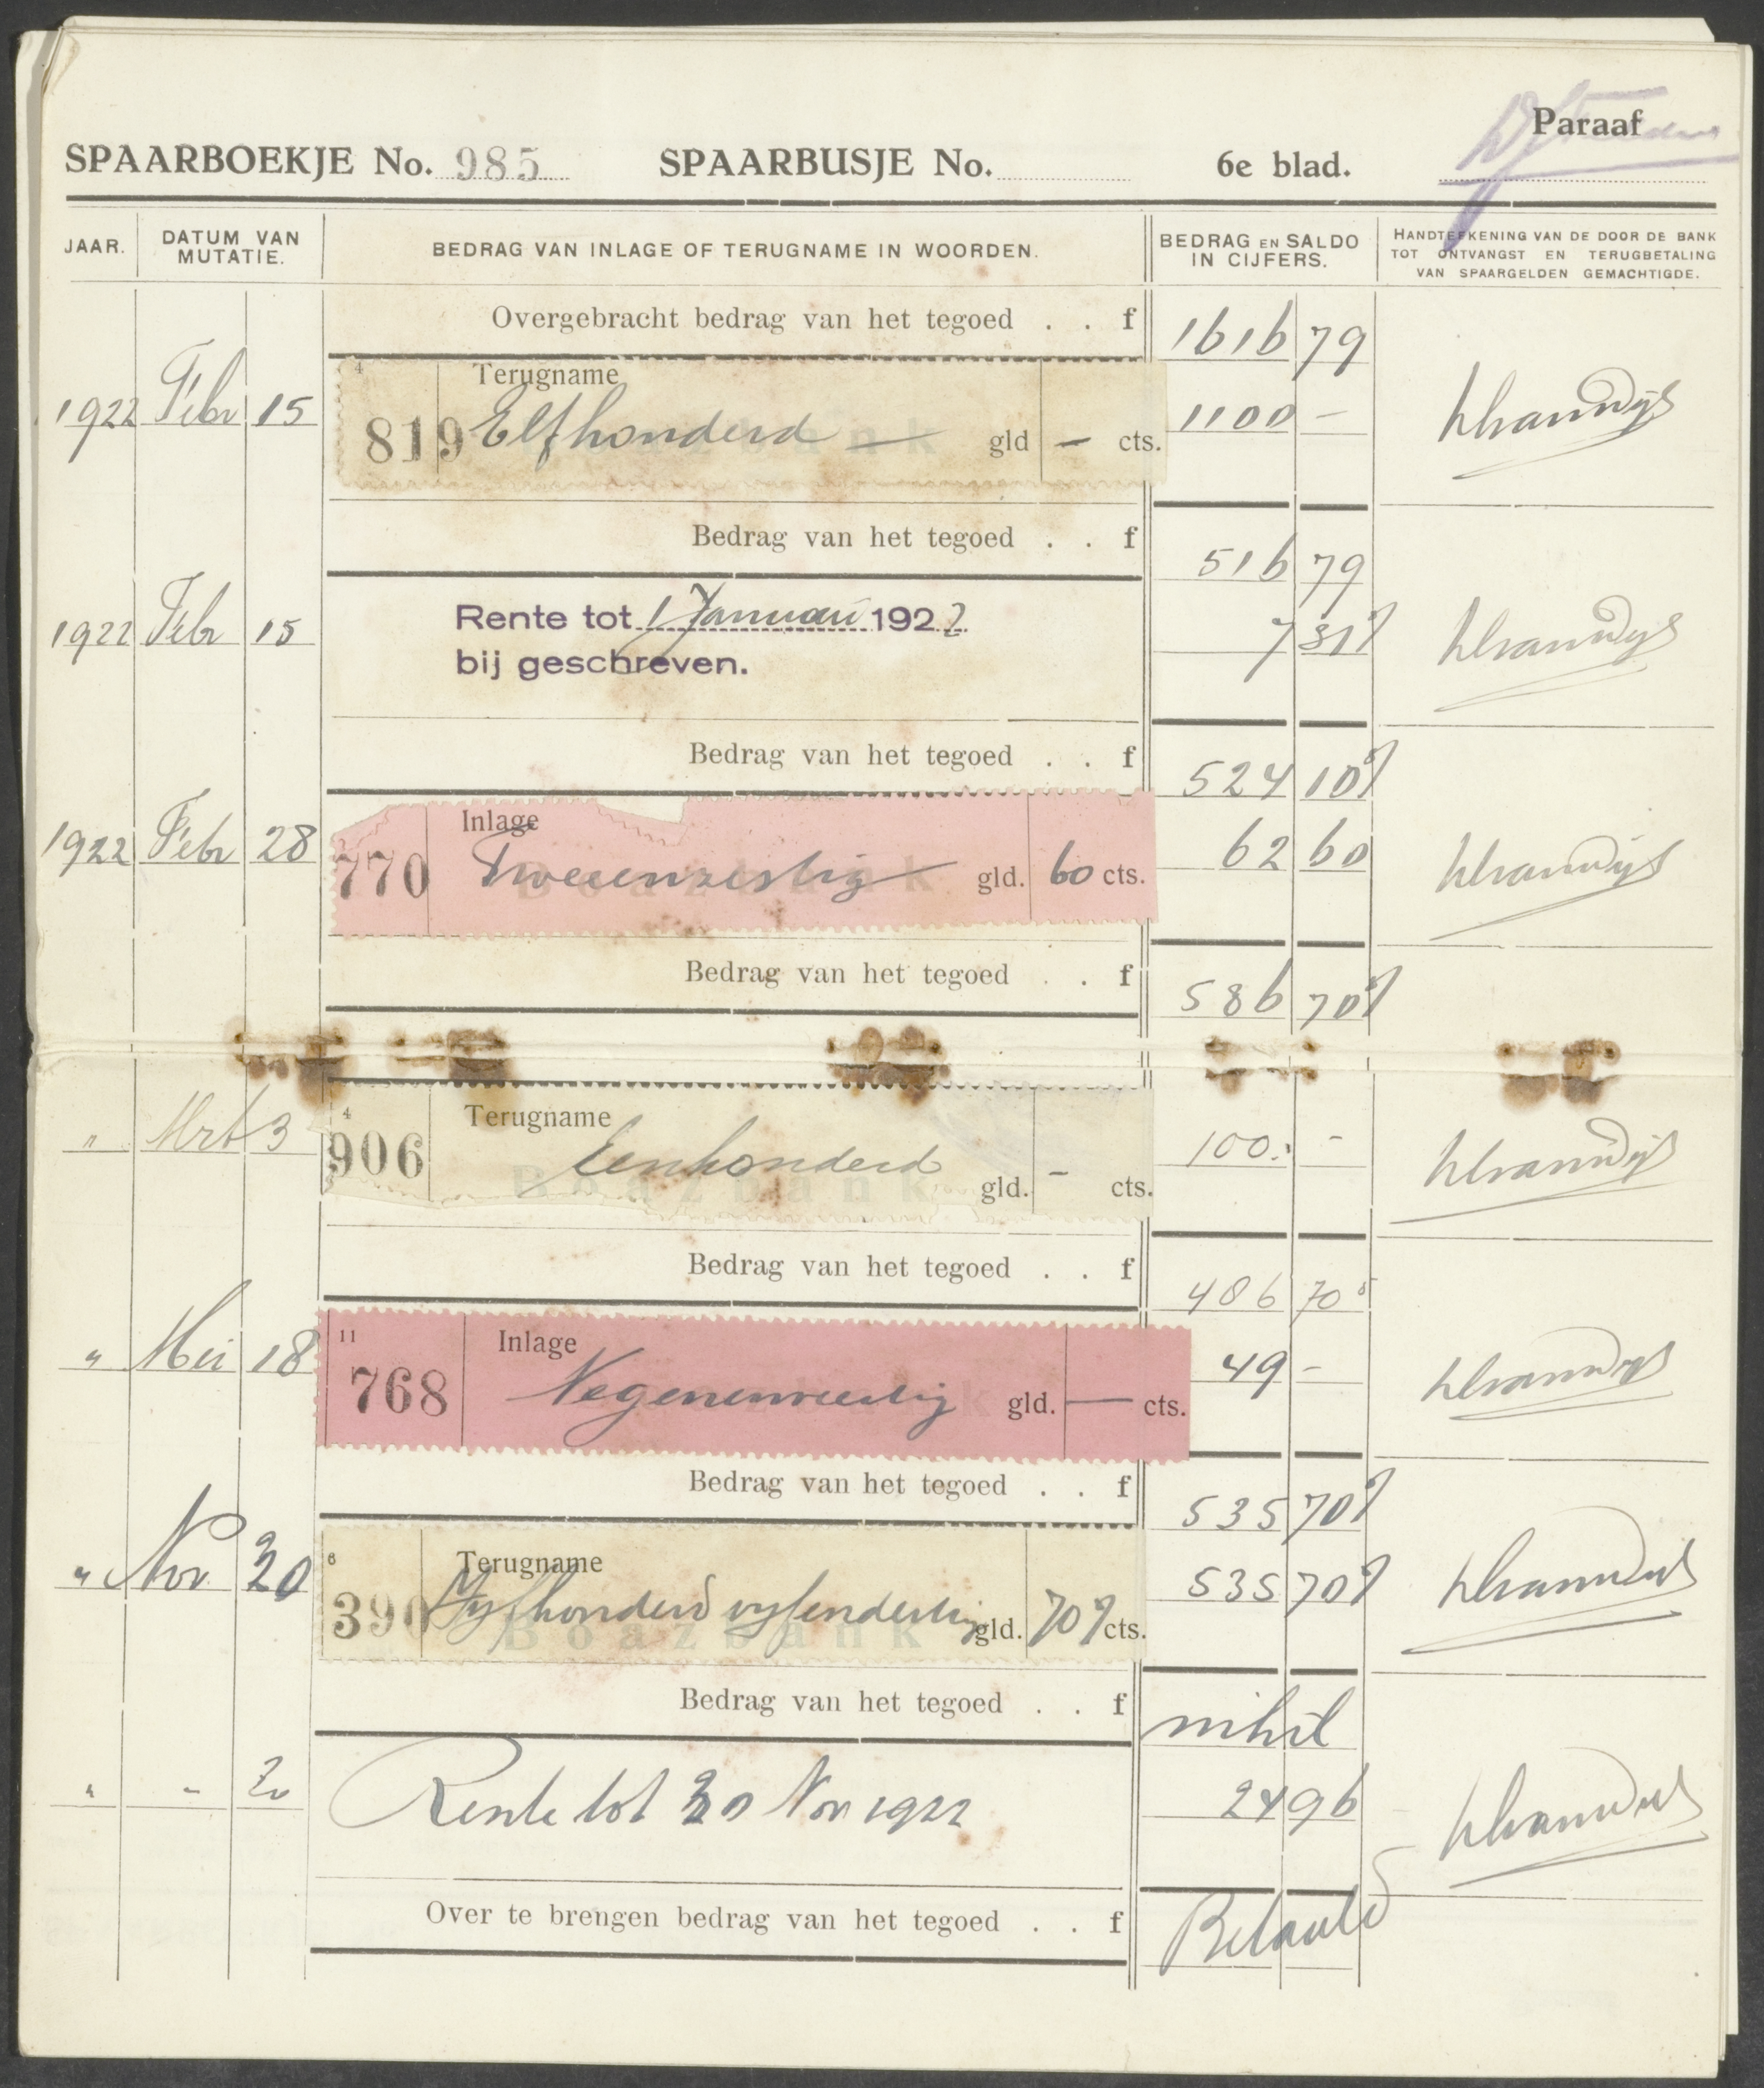 Paraaf
SPAARBOEKJE No. 985 SPAARBUSJE No. 6e blad.
JAAR. DATUM VAN MUTATIE. BEDRAG VAN INLAGE OF TERUGNAME IN WOORDEN. BEDRAG EN SALDO IN CIJFERS. HANDTEEKENING VAN DE DOOR DE BANK TOT ONTVANGST EN TERUGBETALING VAN SPAARGELDEN GEMACHTIGDE.
Overgebracht bedrag van het tegoed . . f 1616 79
4 Terugname
1922 Febr 15 819 Elfhonderd — gld — cts. 1100 –
Boazbank
Bedrag van het tegoed . . f 516 79
1922 Febr 15 Rente tot 1 Januari 1922 7 31⁵
bij geschreven.
Bedrag van het tegoed . . f 524 10⁵
Inlage
1922 Febr 28 770 Tweeenzestig gld. 60 cts. 62 60
Boazbank
Bedrag van het tegoed . . f 586 70⁵
4 Terugname
" Mrt 3 906 Eenhonderd gld. – cts. 100. –
Boazbank
Bedrag van het tegoed . . f 486 70⁵
11 Inlage
" Mei 18 768 Negenenveertig gld. — cts. 49 –
Bedrag van het tegoed . . f 535 70⁵
6 Terugname
" Nov. 20 390 Vyfhonderd vyfendertig gld. 70⁵ cts. 535 70⁵
Boazbank
Bedrag van het tegoed . . f nihil
" " 20 Rente tot 20 Nov 1922 24 96
Over te brengen bedrag van het tegoed . . f Betaald